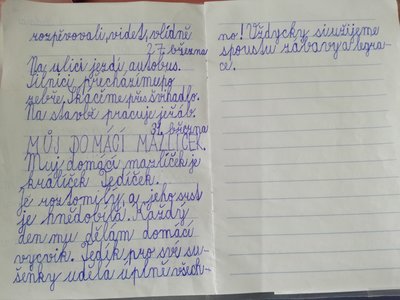 rozpívovali, videt, vlídně
27. března
Na ulici jezdí autobus.
Silnici přecházímepo
zebře. Skáčíme přes švihadlo.
Na stavbě pracuje jeřáb.
31. března
MŮJ DOMÁCÍ MAZLÍČEK.
Muj domácí mazlíček je
králíček Jedíček.
Je roztomilý, a jeho srst
je hnědobílá. Každý
den mu dělám domácí
vycvik. Jedík pro své su-
šenky udělá úplně všech-
no! Vždycky si užijeme
spoustu zábavy a legra-
ce.